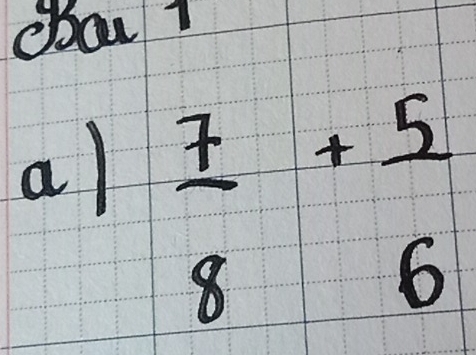 Bài 1
a) 7/8 + 5/6